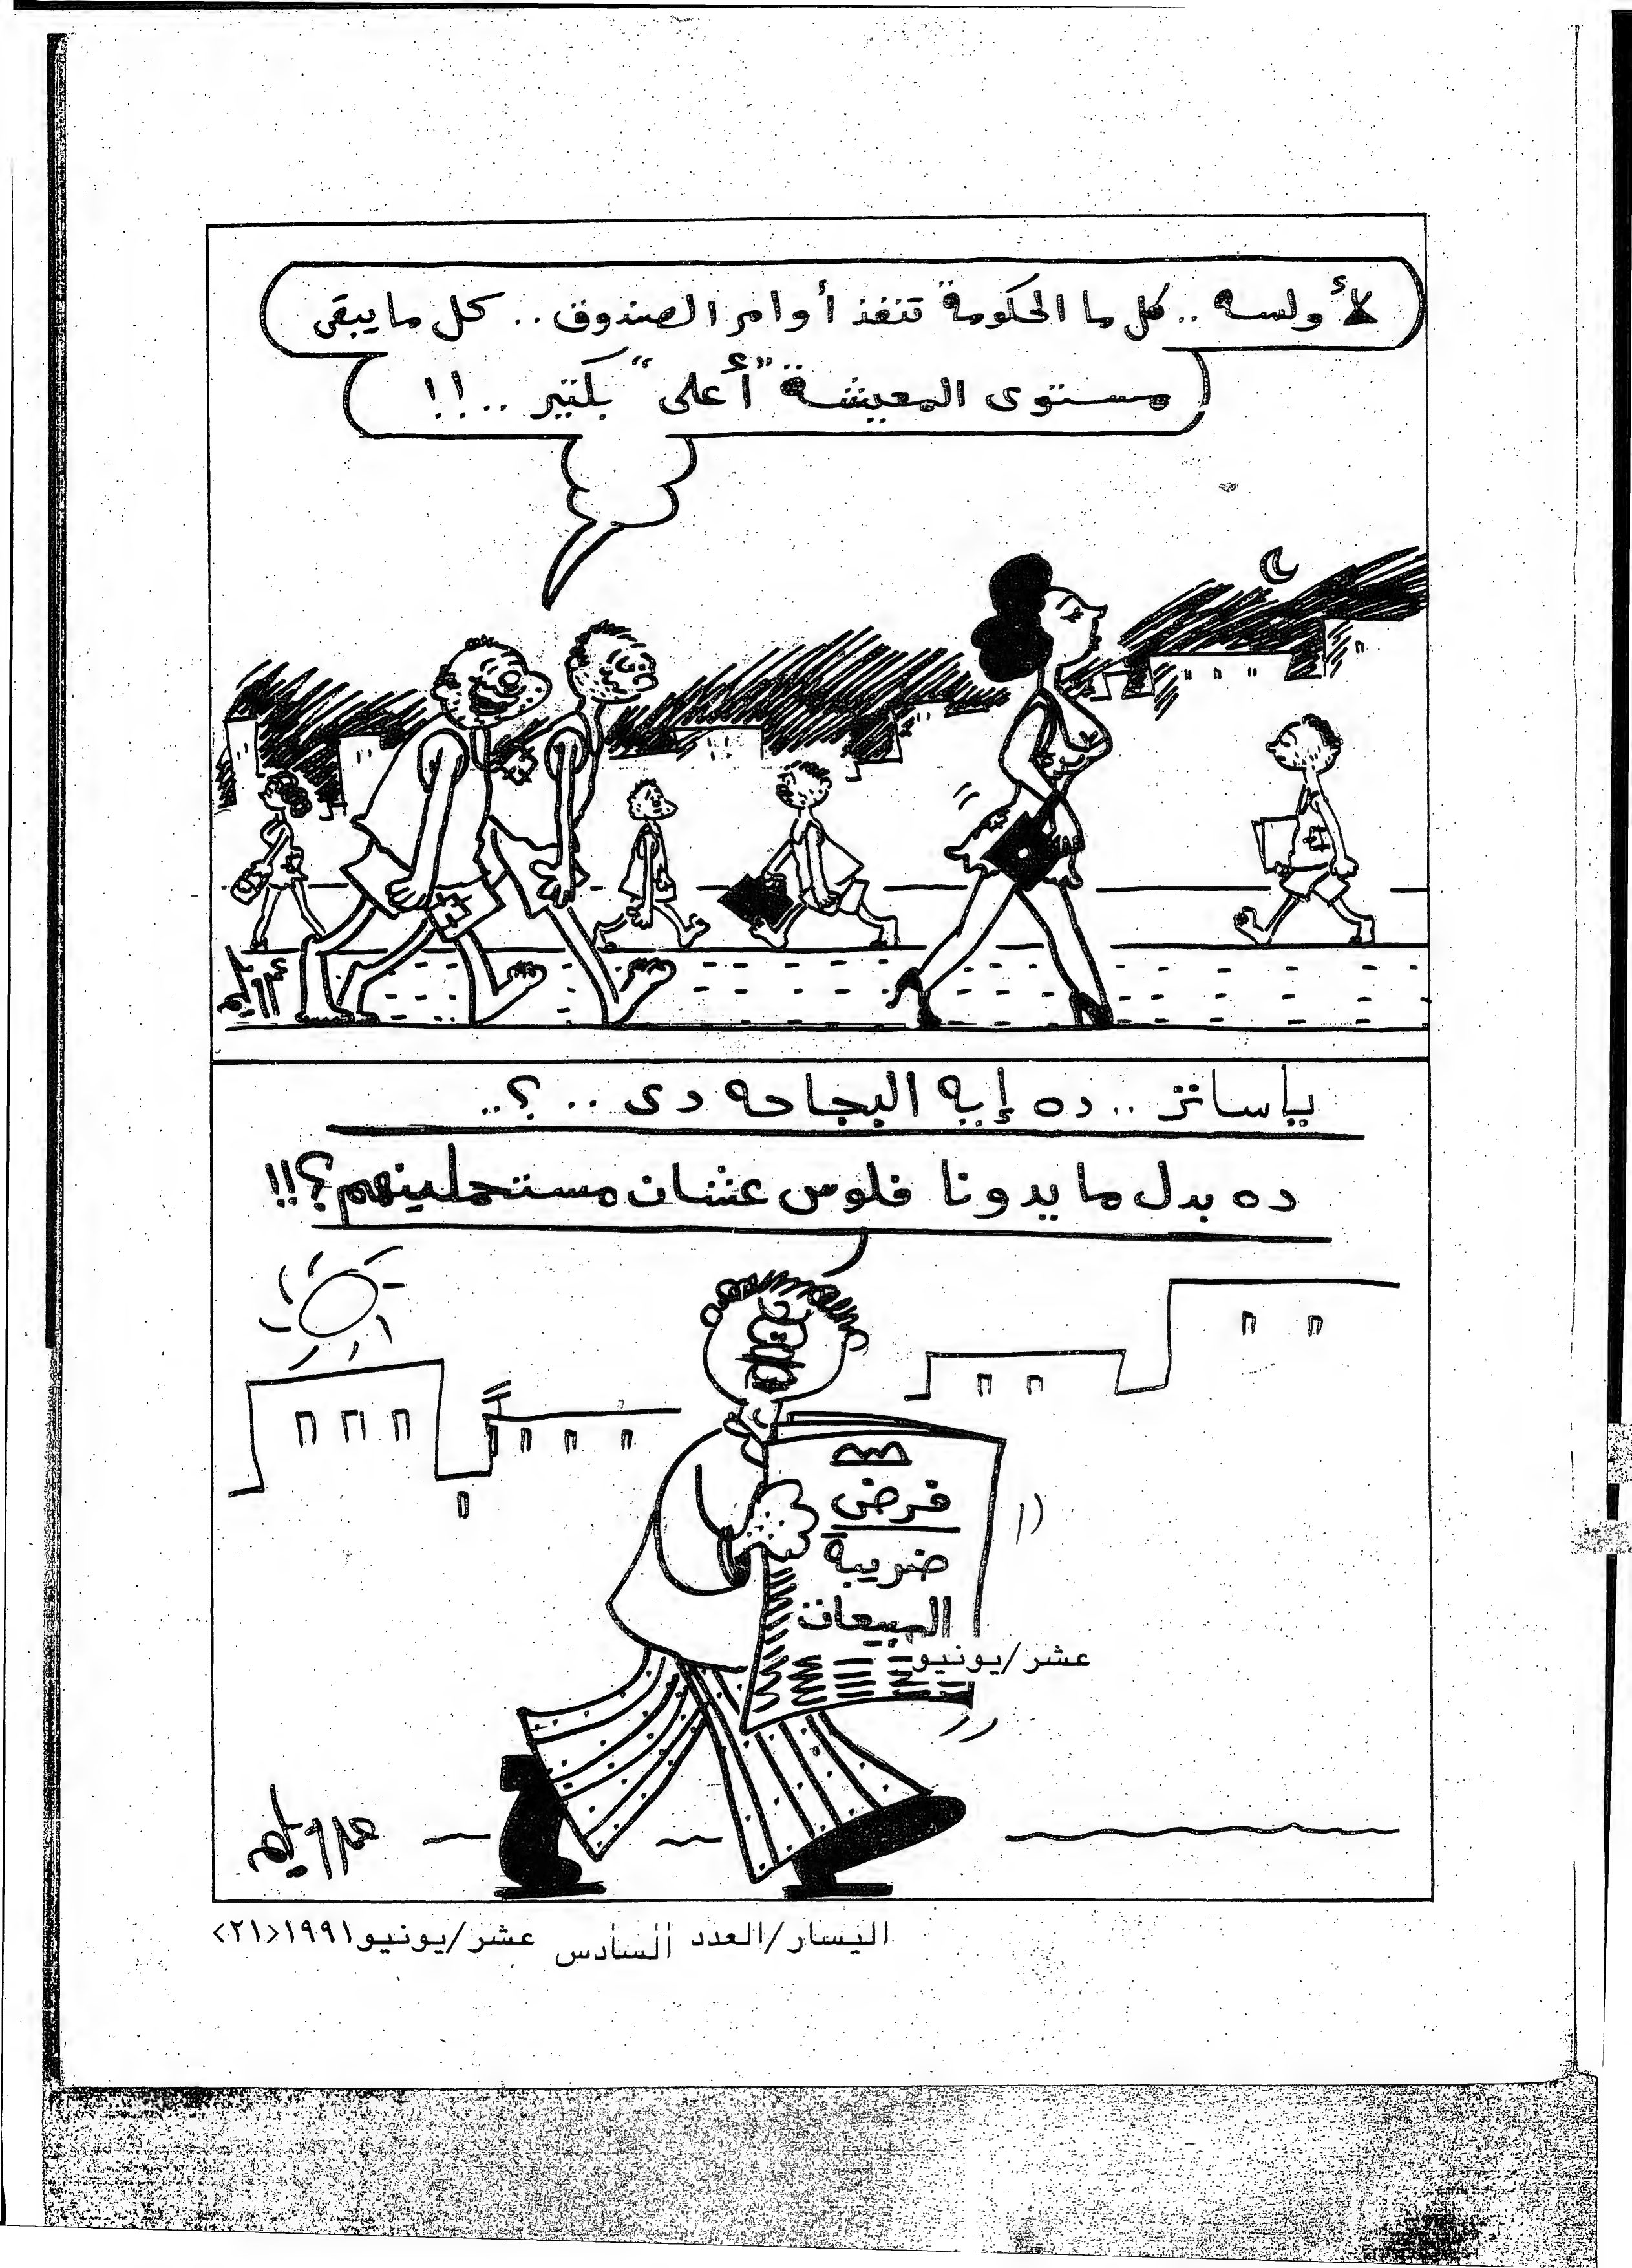 لأ ولسه .. كل ما الحكومة تنفذ أوامر الصندوق .. كل ما يبقى
مستوى المعيشة "أعلى" بكتير ..!!
ياساتر .. ده إيه البجاحه دى .. ؟..
ده بدل ما يدونا فلوس عشان مستحملينهم؟!!
فرض
ضريبة
المبيعات
عشر/يونيو
اليسار/العدد السادس عشر/يونيو١٩٩١<٢١>